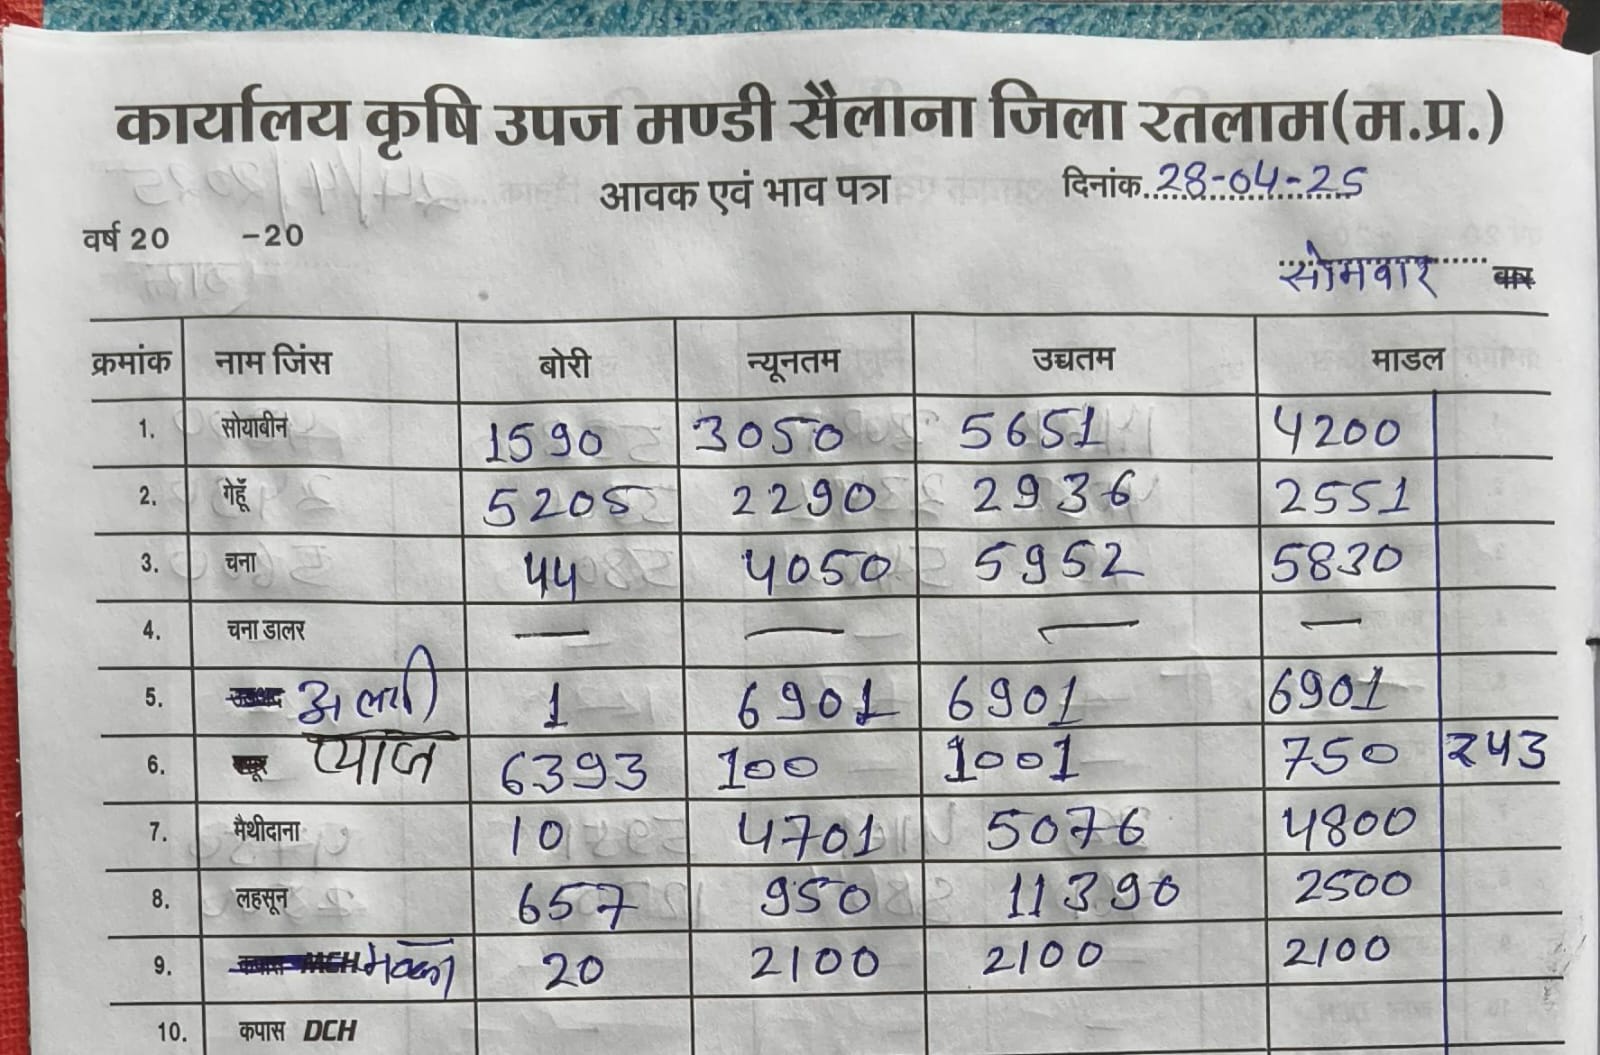 कार्यालय कृषि उपज मण्डी सैलाना जिला रतलाम(म.प्र.)
आवक एवं भाव पत्र दिनांक 28-04-25
वर्ष 20 -20
सोमवार वार
क्रमांक नाम जिंस बोरी न्यूनतम उच्चतम माडल
1. सोयाबीन 1590 3050 5651 4200
2. गेहूँ 5205 2290 2936 2551
3. चना 44 4050 5952 5830
4. चना डालर — — — —
5. अलसी 1 6901 6901 6901
6. प्याज 6393 100 1001 750 243
7. मैथीदाना 10 4701 5076 4800
8. लहसून 657 950 11390 2500
9. मक्का 20 2100 2100 2100
10. कपास DCH